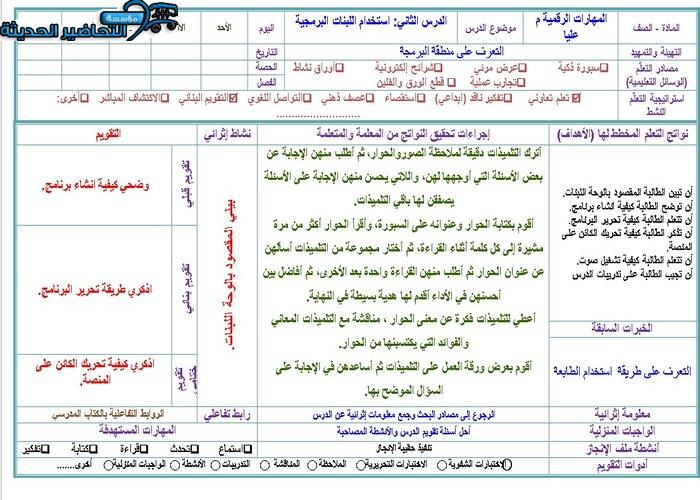 مؤسسة
التحاضير الحديثة
المادة - الصف
المهارات الرقمية م عليا
موضوع الدرس
الدرس الثاني: استخدام اللبنات البرمجية
اليوم
الأحد
التهيئة والتمهيد
التعرف على منطقة البرمجة
التاريخ
مصادر التعلم
(الوسائل التعليمية)
سبورة ذكية
عرض مرئي
شرائح إلكترونية
أوراق نشاط
تجارب عملية
قطع الورق والفلين
الحصة
الفصل
استراتيجية التعلم النشط
تعلم تعاوني
تفكير ناقد (إبداعي)
استقصاء
عصف ذهني
التواصل اللغوي
التقويم البنائي
الاكتشاف المباشر
أخرى:
نواتج التعلم المخطط لها (الأهداف)
إجراءات تحقيق النواتج من المعلمة والمتعلمة
نشاط إثرائي
التقويم
أن تبين الطالبة المقصود بالوحة اللبنات.
أن توضح الطالبة كيفية انشاء برنامج.
أن تتعلم الطالبة كيفية تحرير البرنامج.
أن تذكر الطالبة كيفية تحريك الكائن على المنصة.
أن تتعلم الطالبة كيفية تشغيل صوت.
أن تجيب الطالبة على تدريبات الدرس
الخبرات السابقة
التعرف على طريقة استخدام الطابعة
أترك التلميذات دقيقة لملاحظة الصوروالحوار، ثم أطلب منهن الإجابة عن
بعض الأسئلة التي أوجهها لهن، واللاتي يحسن منهن الإجابة على الأسئلة
يصفقن لها باقي التلميذات.
أقوم بكتابة الحوار وعنوانه على السبورة، وأقرأ الحوار أكثر من مرة
مشيرة إلى كل كلمة أثناء القراءة، ثم أختار مجموعة من التلميذات أسألهن
عن عنوان الحوار ثم أطلب منهن القراءة واحدة بعد الأخرى، ثم أفاضل بين
أحسنهن في الأداء أقدم لها هدية بسيطة في النهاية.
أعطي للتلميذات فكرة عن معنى الحوار ، مناقشة مع التلميذات المعاني
والفوائد التي يكتسبنها من الحوار.
أقوم بعرض ورقة العمل على التلميذات ثم أساعدهن في الإجابة على
السؤال الموضح بها.
بيني المقصود بالوحة اللبنات.
تقويم قبلي
وضحي كيفية انشاء برنامج.
تقويم بنائي
اذكري طريقة تحرير البرنامج.
تقويم ختامي
اذكري كيفية تحريك الكائن على
المنصة.
معلومة إثرائية
الرجوع إلى مصادر البحث وجمع معلومات إثرائية عن الدرس
رابط تفاعلي
الروابط التفاعلية بالكتاب المدرسي
الواجبات المنزلية
أحل أسئلة تقويم الدرس والأنشطة المصاحبة
المهارات المستهدفة
أنشطة ملف الإنجاز
تنفيذ حقيبة الإنجاز
استماع
تحدث
قراءة
كتابة
تفكير
أدوات التقويم
الاختبارات الشفوية
الاختبارات التحريرية
الملاحظة
المناقشة
التدريبات
الأنشطة
الواجبات المنزلية
أخرى.......